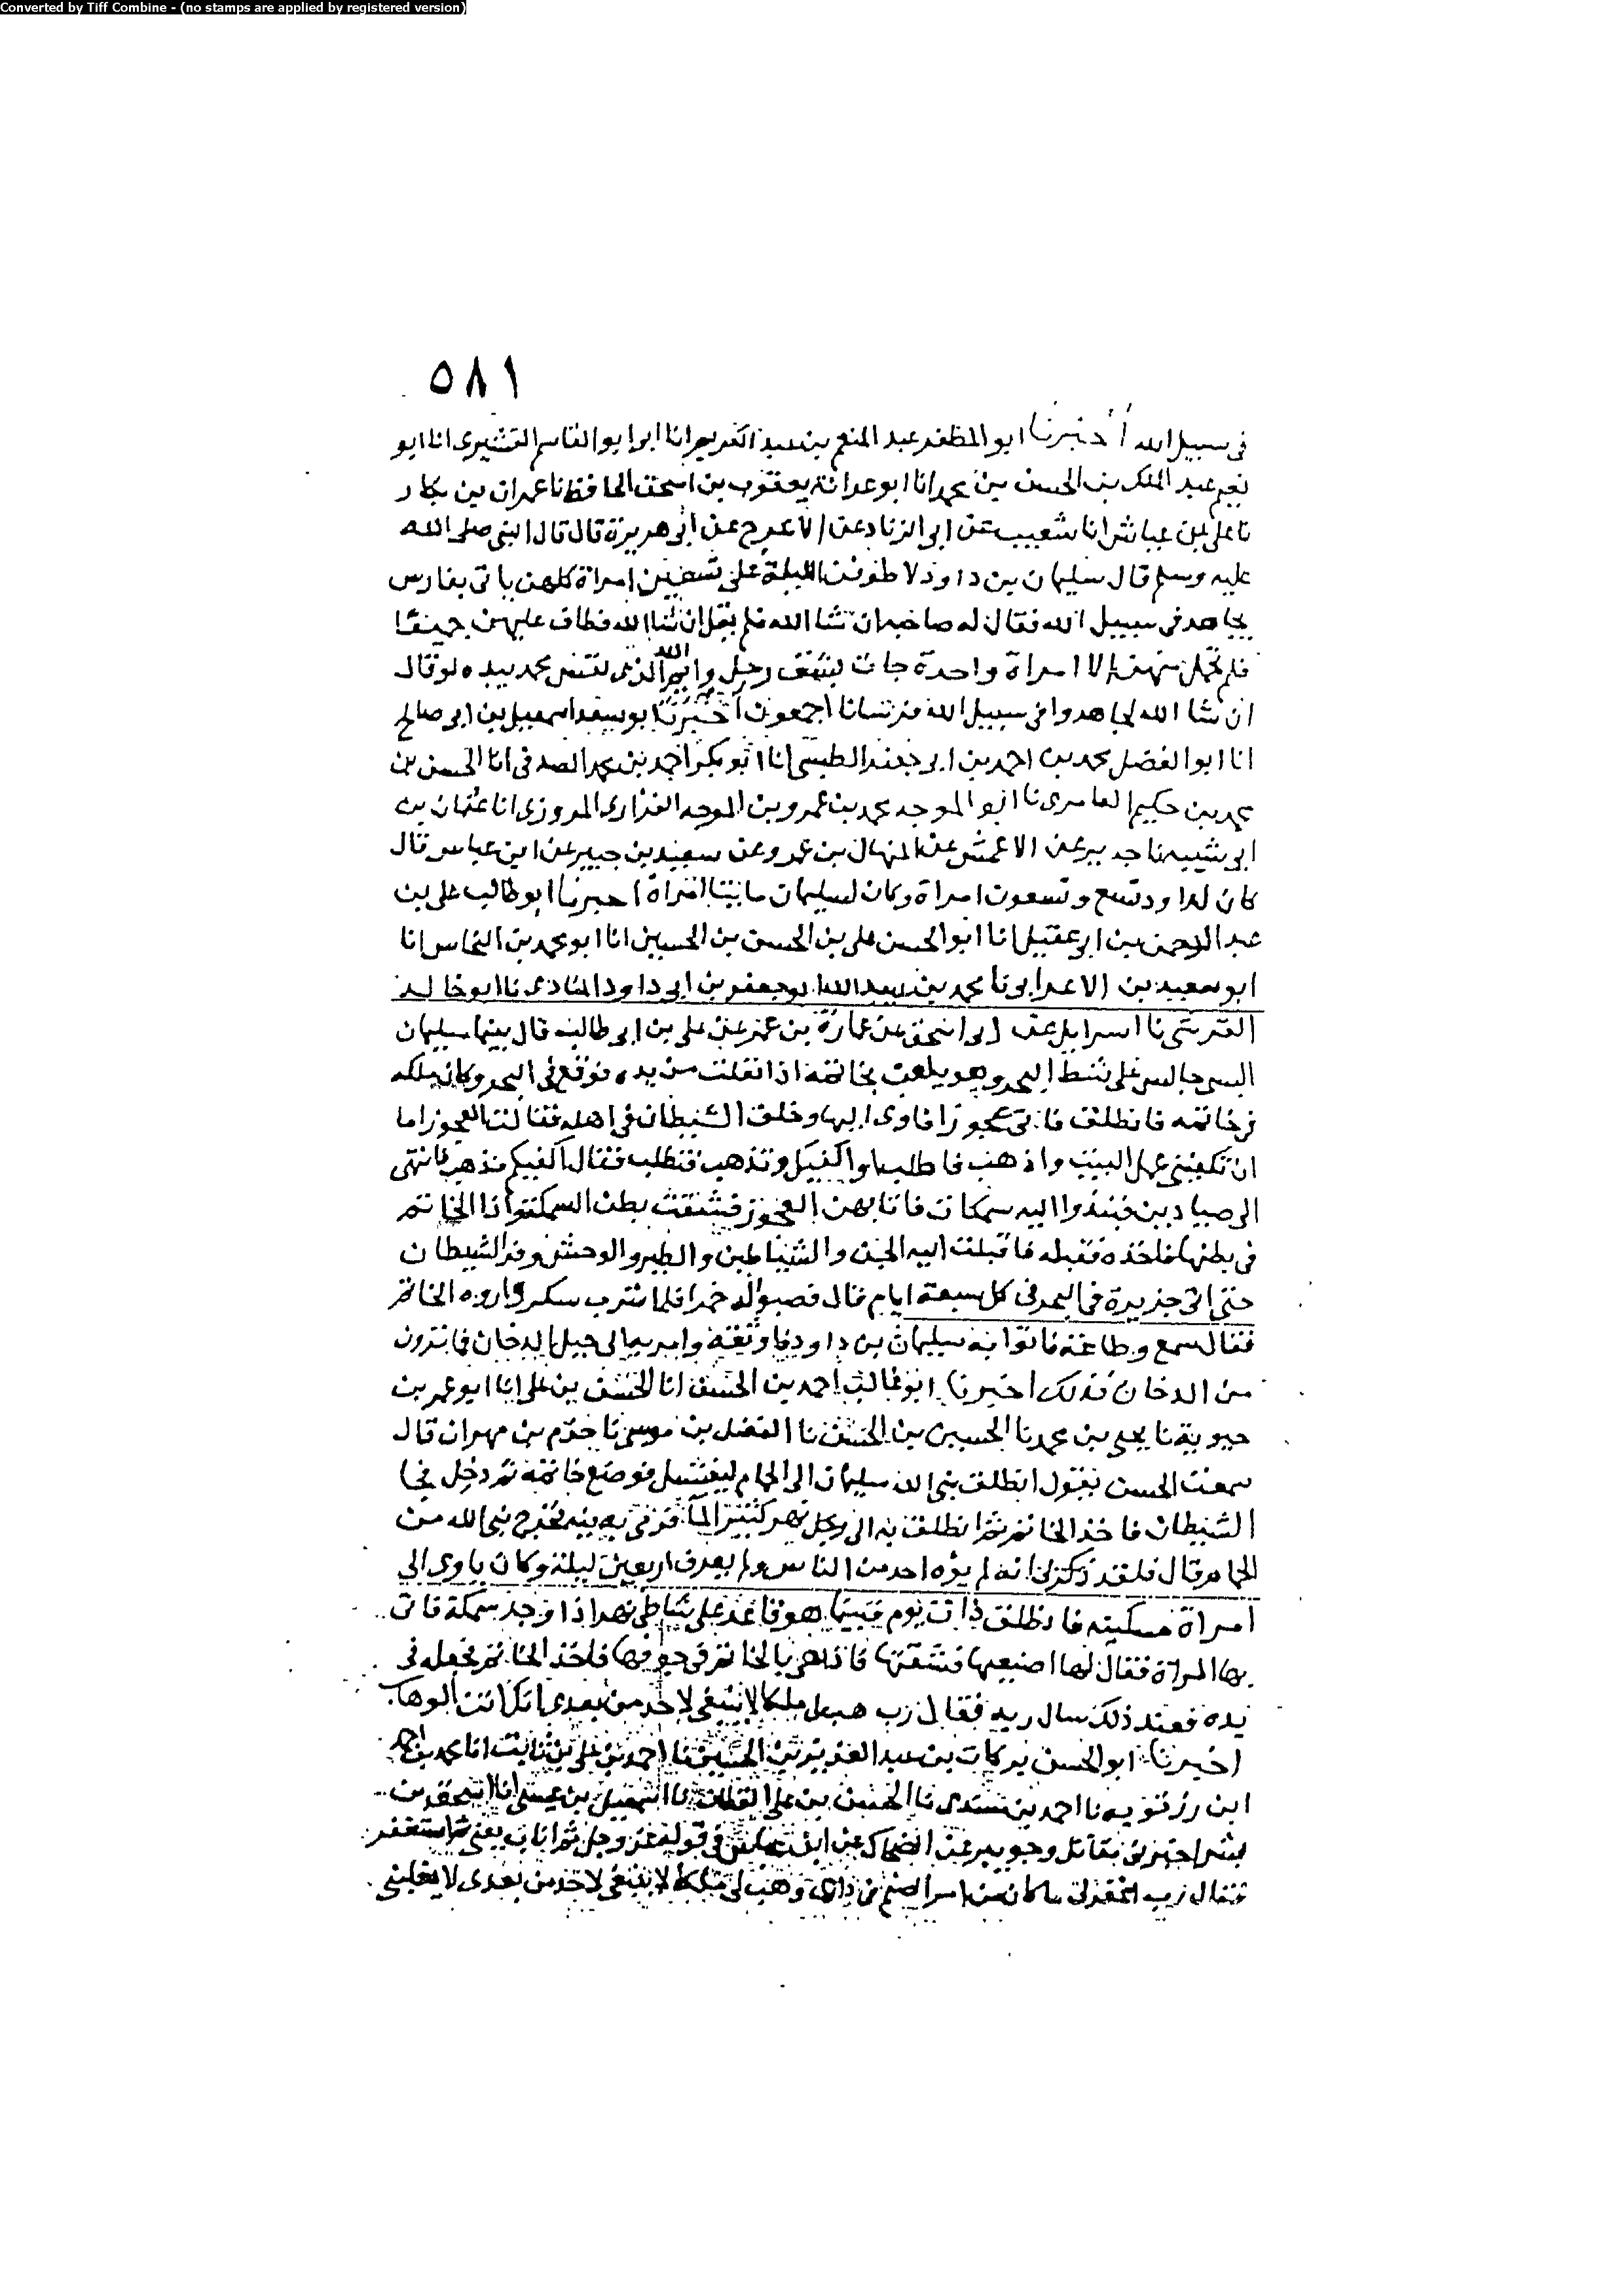 Converted by Tiff Combine - (no stamps are applied by registered version)
٥٨١
فى سبيل الله أخبرنا ابو المظفر عبد المنعم بن عبد الكريم انا ابو القاسم القشيرى انا ابو
نعيم عبد الملك بن الحسن بن محمد انا ابو عوانة يعقوب بن اسحق الحافظ نا عمران بن بكار
نا على بن عياش انا شعيب عن ابى الزناد عن الاعرج عن ابى هريرة قال قال النبى صلى الله
عليه وسلم قال سليمان بن داود لاطوفن الليلة على تسعين امراة كلهن ياتى بفارس
يجاهد فى سبيل الله فقال له صاحبه ان شا الله فلم يقل ان شا الله فطاف عليهن جميعا
فلم تحمل منهن الا امراة واحدة جات بشق رجل وايم الله الذى نفس محمد بيده لو قال
ان شا الله لجاهدوا فى سبيل الله فرسانا اجمعون أخبرنا ابو سعد اسمعيل بن ابى صالح
انا ابو الفضل محمد بن احمد بن ابى جعفر الطبسى انا ابو بكر احمد بن محمد الصدفى انا الحسن بن
محمد بن حكيم العامرى نا ابو الموجه محمد بن عمرو بن الموجه الفزارى المروزى انا عثمان بن
ابى شيبه نا جرير عن الاعمش عن المنهال بن عمرو عن سعيد بن جبير عن ابن عباس قال
كان لداود تسع وتسعون امراة وكان لسليمان مايتا امراة اخبرنا ابو طالب على بن
عبد الرحمن بن ابى عقيل انا ابو الحسن على بن الحسن بن الحسين انا ابو محمد بن النحاس انا
ابو سعيد بن الاعرابى نا محمد بن عبيد الله ابو جعفر بن ابى داود المنادى نا ابو خالد
القرشى نا اسرايل عن ابى اسحق عن عمارة بن عمر عن على بن ابى طالب قال بينما سليمان
النبى جالس على شط البحر وهو يلعب بخاتمه اذ انفلت من يده فوقع فى البحر وكان ملكه
فى خاتمه فانطلق فاتى عجوزا فاوى اليها وخلف الشيطان فى اهله فقالت العجوز اما
ان تكفينى عمل البيت واذهب فاطلب او اكفيك وتذهب فتطلب فقال اكفيكم فذهب فانتهى
الى صيادين فنبذوا اليه سمكات فاتا بهن العجوز فشققت بطن السمكة واذا الخاتم
فى بطنها فاخذه فقبله فاقبلت اليه الجن والشياطين والطير والوحش وفر الشيطان
حتى اتى جزيرة فى البحر فى كل سبعة ايام قال فصبوا له خمرا فلما شرب سكر واروه الخاتم
فقال سمع وطاعة فاتوا به سليمان بن داود فاوثقه وامر به الى جبل الدخان فما ترون
من الدخان فذلك اخبرنا ابو غالب احمد بن الحسن انا الحسن بن على انا ابو عمر بن
حيويه نا يحيى بن محمد نا الحسين بن الحسن نا الفضل بن موسى نا حزم بن مهران قال
سمعت الحسن يقول انطلق نبى الله سليمان الى الحمام ليغتسل فوضع خاتمه ثم دخل فجا
الشيطان فاخذ الخاتم ثم انطلق به الى نهر كثير الما فرمى به فيه فخرج نبى الله من
الحمام قال فلقد ذكر لنا انه لم يؤه احد من الناس ولم يعرف اربعين ليلة وكان ياوى الى
امراة مسكينه فانطلق ذات يوم فبينما هو قاعد على شاطى نهر اذ وجد سمكة فاتى
بها المراة فقال لها اصنعيها فشقتها فاذا هى بالخاتم فى جوفها فاخذ الخاتم فجعله فى
يده فعند ذلك سال ربه فقال رب هب لى ملكا لا ينبغى لاحد من بعدى انك انت الوهاب
اخبرنا ابو الحسن بركات بن عبد العزيز بن الحسين نا احمد بن على بن ثابت انا محمد بن احمد
ابن رزقويه نا احمد بن سندى نا الحسن بن على القطان نا اسمعيل بن عيسى انا اسحق بن
بشر اخبرنى مقاتل وجويبر عن الضحاك عن ابن عباس فى قوله عز وجل ثم اناب يعنى ثم استغفر
فقال رب اغفر لى ما كان من امر الصنم فى دارى وهب لى ملكا لا ينبغى لاحد من بعدى لا يغلبنى